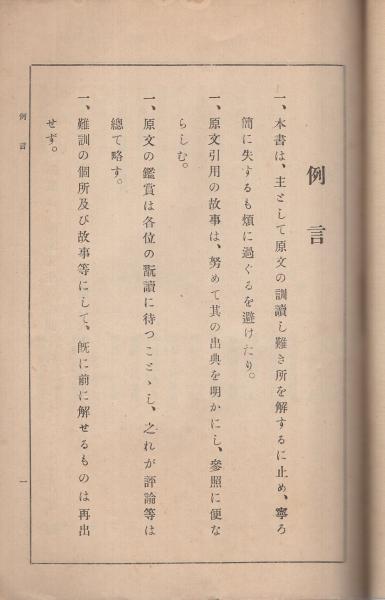 例言
一、本書は、主として原文の訓讀し難き所を解するに止め、寧ろ
簡に失するも煩に過ぐるを避けたり。
一、原文引用の故事は、努めて其の出典を明かにし、參照に便な
らしむ。
一、原文の鑑賞は各位の翫讀に待つことゝし、之れが評論等は
總て略す。
一、難訓の個所及び故事等にして、既に前に解せるものは再出
せず。
例言
一